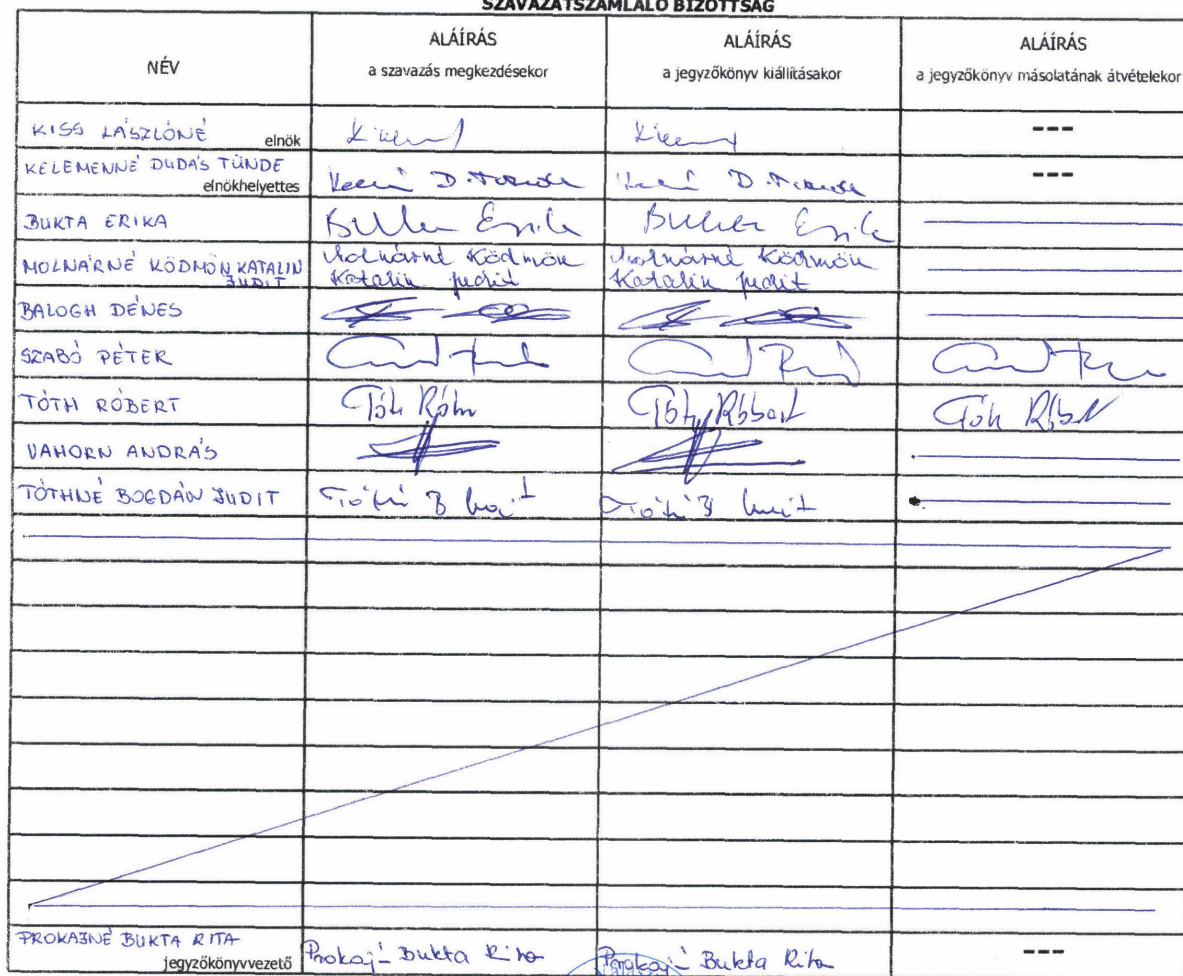 SZAVAZATSZÁMLÁLÓ BIZOTTSÁG
NÉV
ALÁÍRÁS
a szavazás megkezdésekor
ALÁÍRÁS
a jegyzőkönyv kiállításakor
ALÁÍRÁS
a jegyzőkönyv másolatának átvételekor
KISS LÁSZLÓNÉ
elnök
---
KELEMENNÉ DUDÁS TÜNDE
elnökhelyettes
D. Tünde
D. Tünde
---
BUKTA ERIKA
MOLNÁRNÉ KÖDMÖN KATALIN
JUDIT
Molnárné Ködmön
Katalin Judit
Molnárné Ködmön
Katalin Judit
BALOGH DÉNES
SZABÓ PÉTER
TÓTH RÓBERT
Tóth Róbert
VAHORN ANDRÁS
TÓTHNÉ BOGDÁN JUDIT
PROKAJNÉ BUKTA RITA
jegyzőkönyvvezető
Bukta Rita
Bukta Rita
---